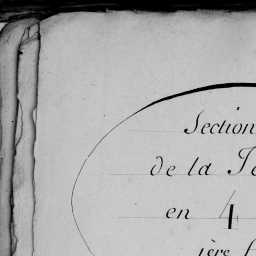 Section
de la
en 4
1ère